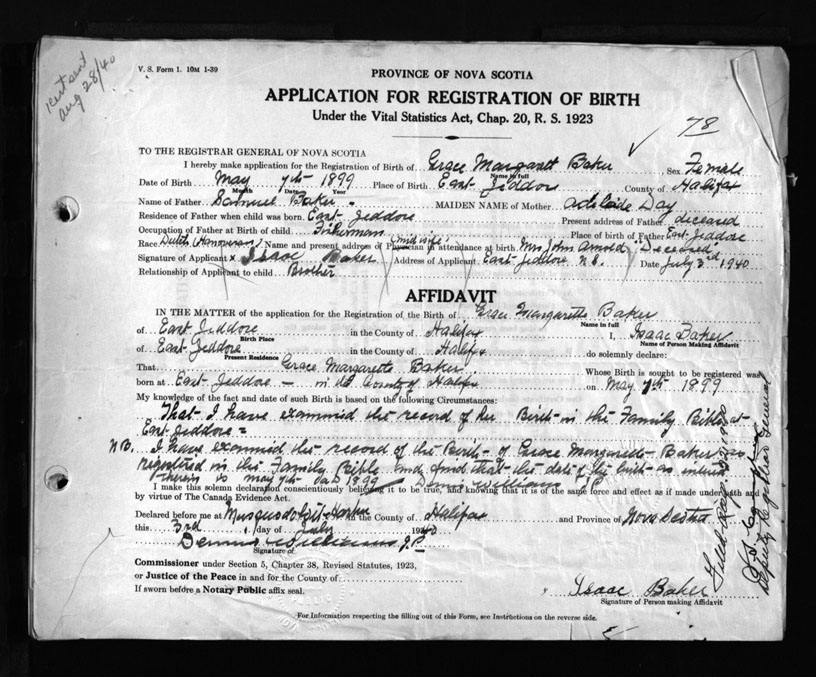 Cert sent
Aug 28/40
V. S. Form 1. 10M 1-39
PROVINCE OF NOVA SCOTIA
APPLICATION FOR REGISTRATION OF BIRTH
Under the Vital Statistics Act, Chap. 20, R. S. 1923
78
TO THE REGISTRAR GENERAL OF NOVA SCOTIA
I hereby make application for the Registration of Birth of Grace Margaret Baker Sex Female
Name in full
Date of Birth May 7th 1899 Place of Birth East Jeddore County of Halifax
Month Date Year
Name of Father Samuel Baker MAIDEN NAME of Mother Adelaide Day
Residence of Father when child was born East Jeddore Present address of Father deceased
Occupation of Father at Birth of Child Fisherman Place of birth of Father East Jeddore
Race Dutch (Hanoverian) Name and present address of Physician in attendance at birth (midwife) Mrs John Arnold "Deceased"
Signature of Applicant x Isaac Baker Address of Applicant East Jeddore N.S. Date July 3rd 1940
Relationship of Applicant to child Brother
AFFIDAVIT
IN THE MATTER of the application for the Registration of the Birth of Grace Margarette Baker
Name in full
of East Jeddore in the County of Halifax I, Isaac Baker
Birth Place Name of Person Making Affidavit
of East Jeddore in the County of Halifax do solemnly declare:
Present Residence
That Grace Margarette Baker Whose Birth is sought to be registered was
born at East Jeddore - in the County of Halifax on May 7th 1899
My knowledge of the fact and date of such Birth is based on the following Circumstances:
That I have examined the record of her Birth in the Family Bible at
East Jeddore =
NB. I have examined the record of the Birth of Grace Margarette Baker as
registered in the Family Bible and find that the date of the birth as entered
therein is May 7th 1899 Dennis Williams J P
I make this solemn declaration conscientiously believing it to be true, and knowing that it is of the same force and effect as if made under oath and
by virtue of The Canada Evidence Act.
Declared before me at Musquodoboit Harbor in the County of Halifax and Province of Nova Scotia
this 3rd day of July 1940
Dennis Williams J.P.
Signature of
Commissioner under Section 5, Chapter 38, Revised Statutes, 1923,
or Justice of the Peace in and for the County of
If sworn before a Notary Public affix seal.
x Isaac Baker
Signature of Person making Affidavit
For Information respecting the filling out of this Form, see Instructions on the reverse side.
Deputy Registrar General